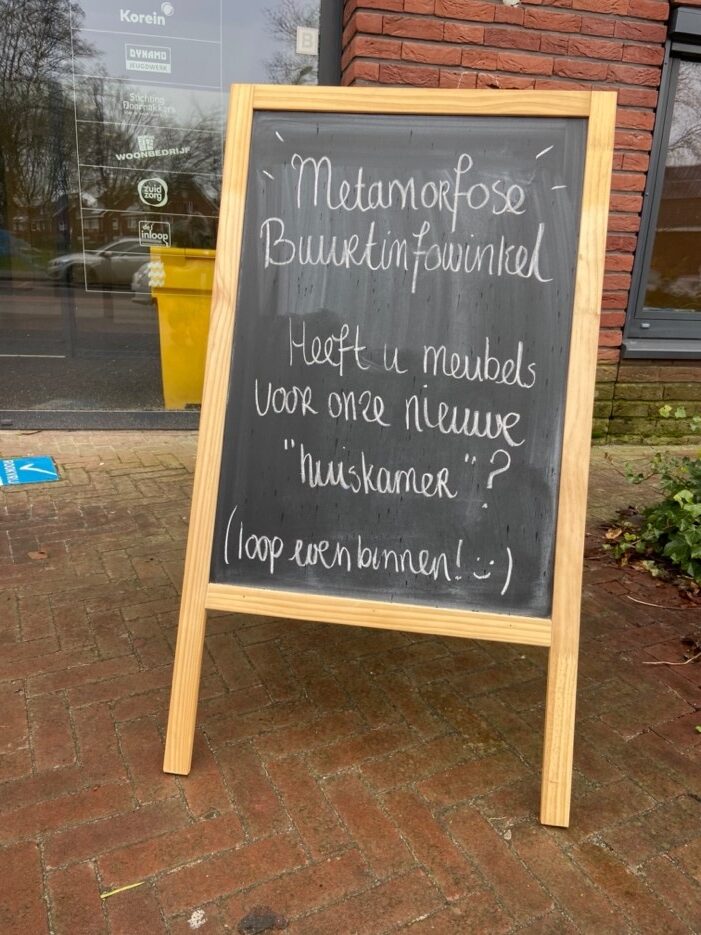 Korein
B
DYNAMO
JEUGDWERK
Stichting
WOONBEDRIJF
zuid
zorg
de
inloop
Metamorfose
Buurtinfowinkel
Heeft u meubels
voor onze nieuwe
"huiskamer"?
(loop even binnen! :-)
ROOKVRIJ